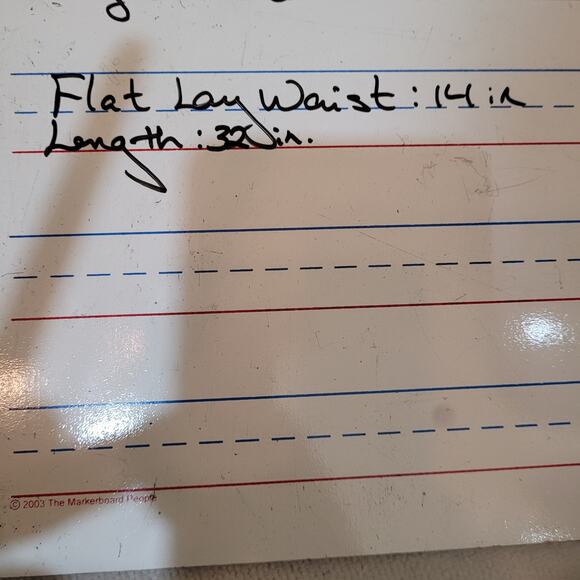 Flat Lay Waist : 14 in
Length : 32 in.
© 2003 The Markerboard People